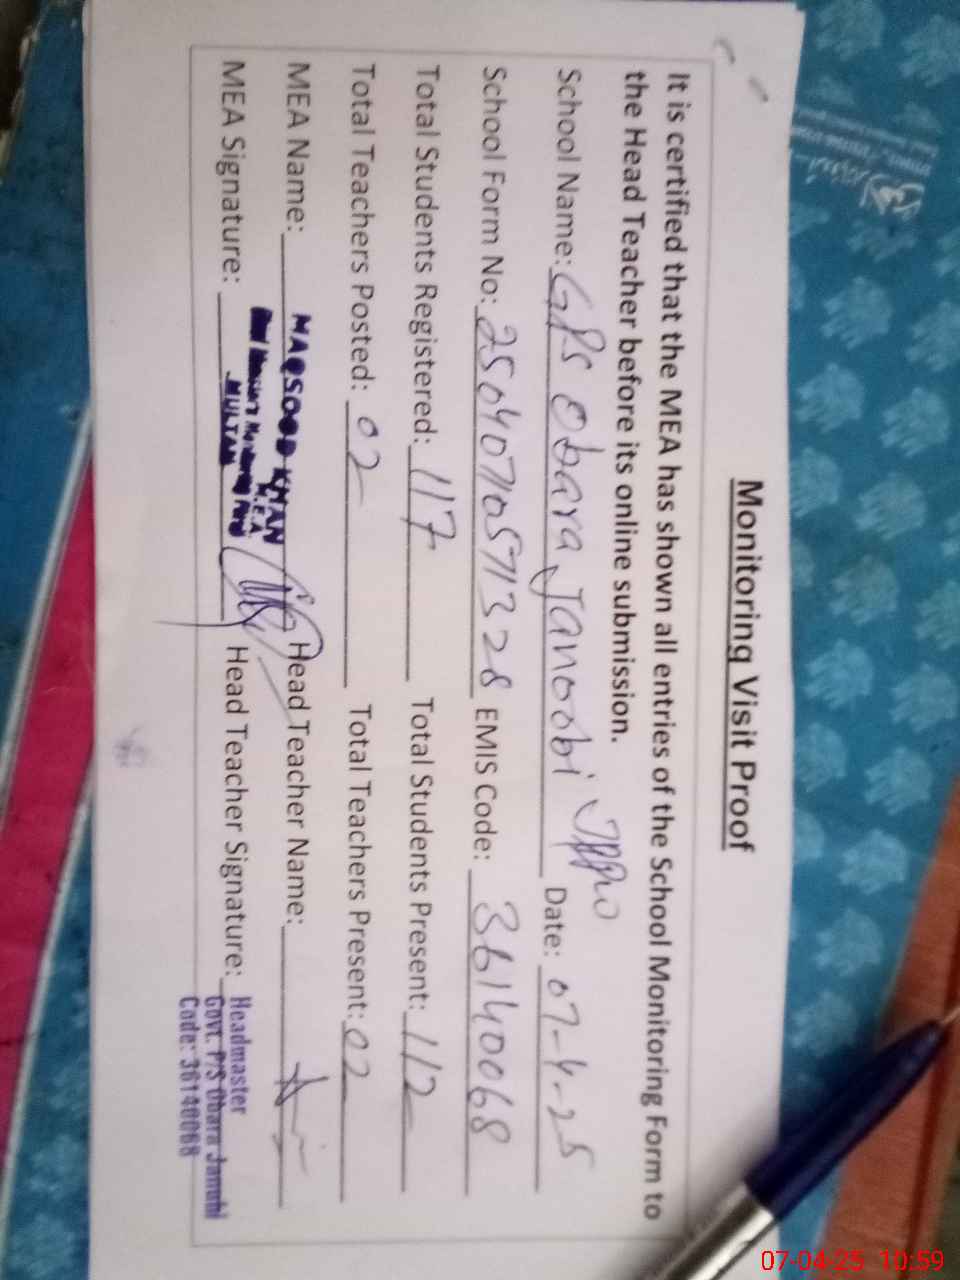 Monitoring Visit Proof
It is certified that the MEA has shown all entries of the School Monitoring Form to
the Head Teacher before its online submission.
School Name: GPS Obara Janoobi Date: 07-4-25
School Form No: 2504070571328 EMIS Code: 36140068
Total Students Registered: 117 Total Students Present: 112
Total Teachers Posted: 02 Total Teachers Present: 02
MEA Name: MAQSOOD KHAN Head Teacher Name:
M.E.A
MULTAN
MEA Signature: Head Teacher Signature: Headmaster
Govt. P/S Obara Janubi
Code: 36140068
07-04-25 10:59